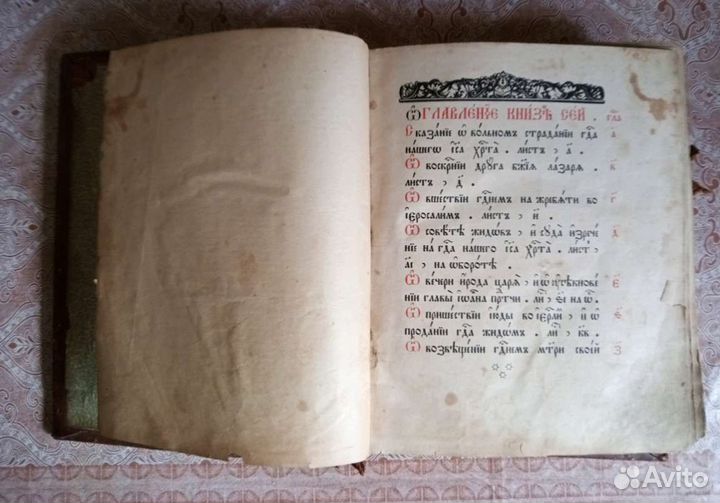 Ѡ҆главле́нїе кни́зѣ се́й . гла̑
Сказа́нїе ѡ҆ во́льномъ страда́нїи гдⷭ҇а а҃
на́шегѡ і҆с҃а хрⷭ҇та̀ . ли́стъ , а҃ .
Ѡ҆ воскрⷭ҇нїи дрꙋ́га бж҃їѧ ла́зарѧ . в҃
ли́стъ , д҃ .
Ѡ҆ вше́ствїи гдⷭ҇немъ на жребѧ́ти во г҃
і҆еросали́мъ . ли́стъ , и҃ .
Ѡ҆ совѣ́тѣ жидѡ́въ , и҆ сꙋда̀ и҆зрече́ д҃
нїе на гдⷭ҇а на́шего і҆с҃а хрⷭ҇та̀ . ли́стъ ,
а҃і , на ѡ҆боро́тѣ .
Ѡ҆ ве́чери и҆́рода царѧ̀ , и҆ ѡ҆ ᲂу҆сѣ́кнове́ є҃
нїи главы̀ і҆ѡа́нна прⷣте́чи . ли́ , є҃і на ѡ҆
Ѡ҆ прише́ствїи і҆ю́ды во і҆ерⷭ҇ли́мъ , и҆ ѡ҆ ѕ҃
прода́нїи гдⷭ҇а жидѡ́мъ . ли́ , к҃в .
Ѡ҆ возвѣще́нїи гдⷭ҇немъ мт҃ри свое́й з҃
Avito